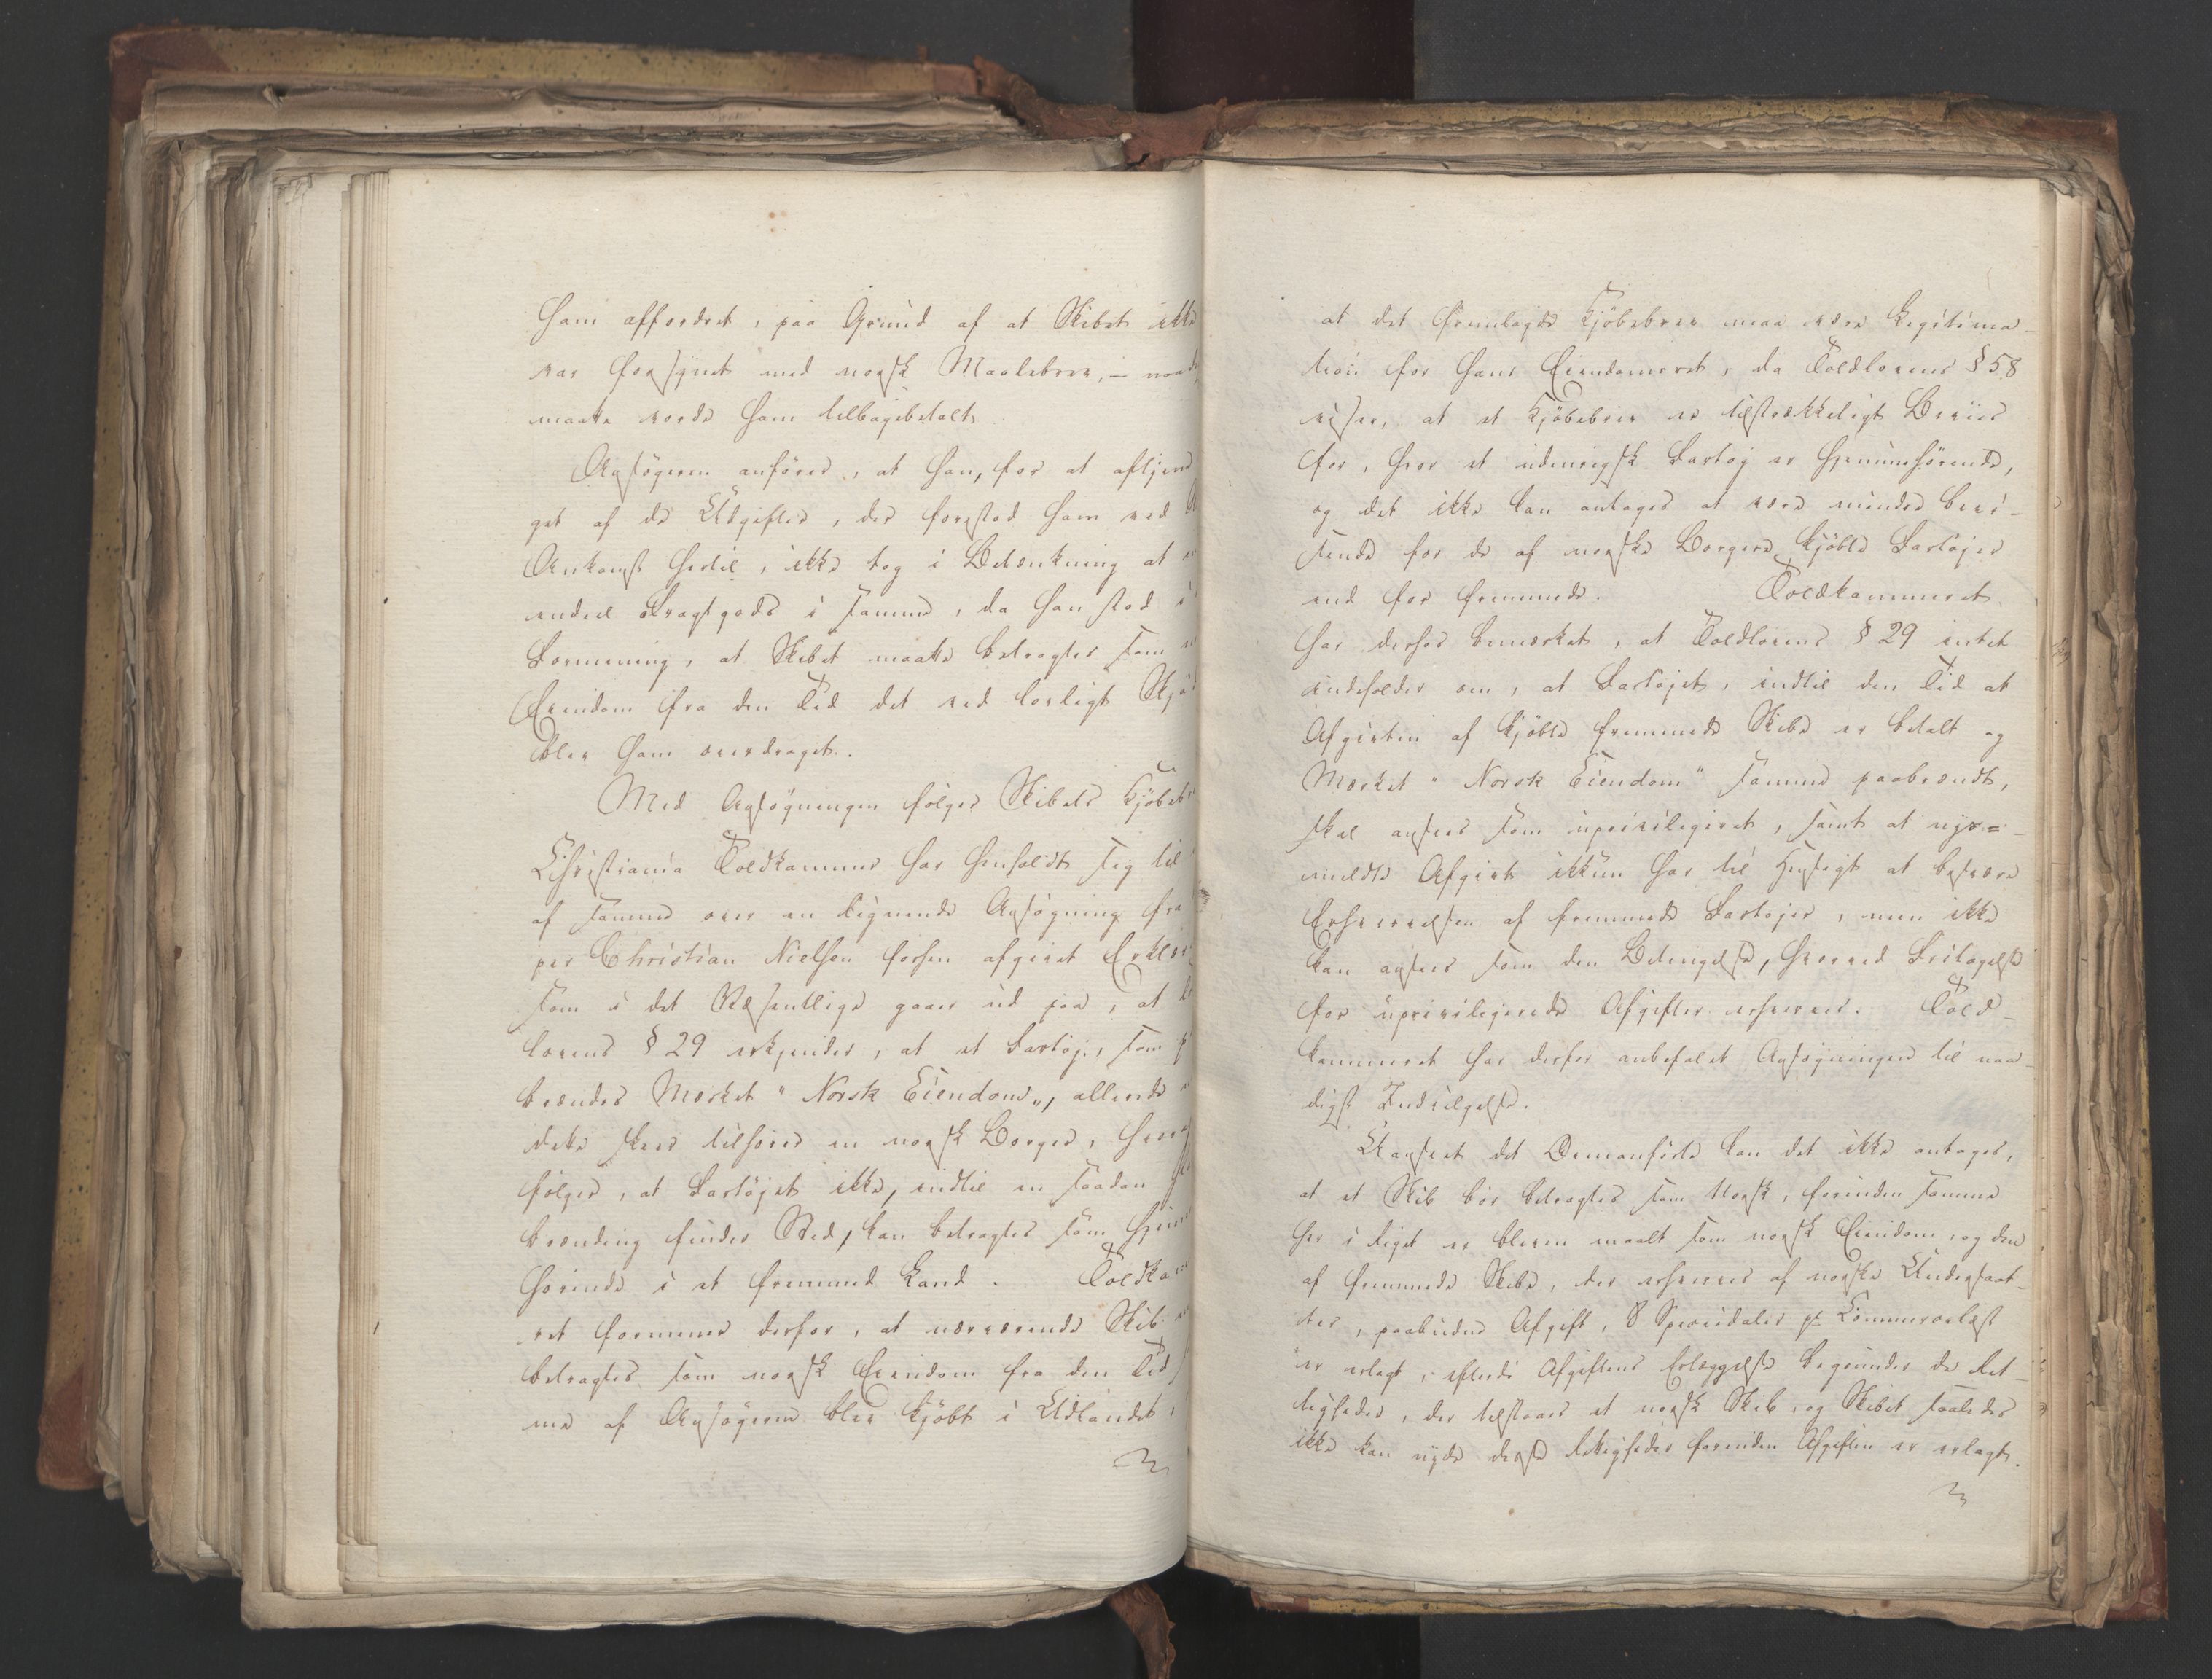 ham affordret, paa Grund af at Skibet ikke
var forsynet med norsk Maalebrev, — naad
maatte vorde ham tilbagebetalt
Ansøgeren anfører, at han, for at aftjene
get af de Udgifter, der forestod ham ved
Ankomst hertil, ikke tog i Betænkning at
endeel Fragtgods i samme, da han stod i
Formening, at Skibet maatte betragtes som
Eiendom fra den Tid det ved lovligt Skjø
blev ham overdraget.
Med Ansøgningen følger Skibets Kjøbebr
Christiania Toldkammer har henholdt sig til
af samme over en lignende Ansøgning fra
per Christian Nielsen forhen afgivet Erklær
som i det Væsentlige gaaer ud paa, at
lovens § 29 erkjender, at et Fartøj, som
brændes Mærket " Norsk Eiendom„, allerede
dette skeer tilhører en norsk Borger, hvoraf
følger, at Fartøjet ikke, indtil en saadan
brænding finder Sted, kan betragtes som hjem
hørende i et fremmed Land. Toldkam
ret formener derfor, at nærværende Skib
betragtes som norsk Eiendom fra den Tid
me af Ansøgeren blev kjøbt i Udlandet,
at det fremlagde Kjøbebrev maa være Legitima-
tion for hans Eiendomsret, da Toldlovens § 58
viser, at et Kjøbebrev er tilstrækkeligt Beviis
for, hvor et udenrigsk Fartøj er hjemmehørende,
og det ikke kan antages at være mindre bevi-
sende for de af norske Borgere kjøbte Fartøjer
end for fremmede. Toldkammeret
har derhos bemærket, at Toldlovens § 29 intet
indeholder om, at Fartøjet, indtil den Tid at
Afgivten af kjøbte fremmede Skibe er betalt og
Mærket " Norsk Eiendom " samme paabrændt,
skal ansees som upriviligeret, samt at nys=
meldte Afgivt ikkun har til Hensigt at besvære
Erhvervelsen af fremmede Fartøjer, men ikke
kan ansees som den Betingelse, hvorved Fritagelse
for upriviligerede Afgifter erhverves. Told-
kammeret har derfor anbefalet Ansøgningen til naa-
digst Indvilgelse.
Uanseet det Ovenanførte kan det ikke antages,
at et Skib bør betragtes som Norsk, forinden samme
her i Riget er bleven maalt som norsk Eiendom, og den
af fremmede Skibe, der erhverves af norske Undersaat-
ter, paabudne Afgift, 8 Speciedaler pr Commercelæst
er erlagt, efterdi Afgiftens Erlæggelse begrunder de Ret-
tigheder, der tilstaaes et norsk Skib, og Skibet saaledes
ikke kan nyde disse Rettigheder forinden Afgiften er erlagt.